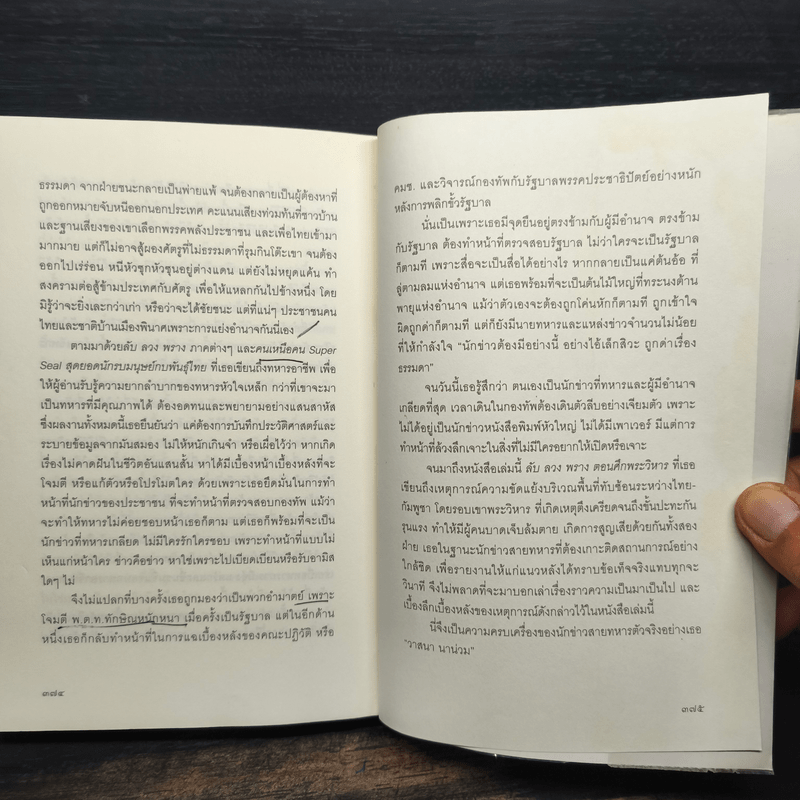 ธรรมดา จากฝ่ายชนะกลายเป็นพ่ายแพ้ จนต้องกลายเป็นผู้ต้องหาที่
ถูกออกหมายจับหนีออกนอกประเทศ คะแนนเสียงท่วมท้นที่ชาวบ้าน
และฐานเสียงของเขาเลือกพรรคพลังประชาชน และเพื่อไทยเข้ามา
มากมาย แต่ก็ไม่อาจสู้ผองศัตรูที่ไม่ธรรมดาที่รุมกินโต๊ะเขา จนต้อง
ออกไปเร่ร่อน หนีหัวซุกหัวซุนอยู่ต่างแดน แต่ยังไม่หยุดแค้น ทำ
สงครามต่อสู้ข้ามประเทศกับศัตรู เพื่อให้แหลกกันไปข้างหนึ่ง โดย
มิรู้ว่าจะยิ่งเละกว่าเก่า หรือว่าจะได้ชัยชนะ แต่ที่แน่ๆ ประชาชนคน
ไทยและชาติบ้านเมืองพินาศเพราะการแย่งอำนาจกันนี่เอง
ตามมาด้วยลับ ลวง พราง ภาคต่างๆ และคนเหนือคน Super
Seal สุดยอดนักรบมนุษย์กบพันธุ์ไทย ที่เธอเขียนถึงทหารอาชีพ เพื่อ
ให้ผู้อ่านรับรู้ความยากลำบากของทหารหัวใจเหล็ก กว่าที่เขาจะมา
เป็นทหารที่มีคุณภาพได้ ต้องอดทนและพยายามอย่างแสนสาหัส
ซึ่งผลงานทั้งหมดนี้เธอยืนยันว่า แค่ต้องการบันทึกประวัติศาสตร์และ
ระบายข้อมูลจากมันสมอง ไม่ให้หนักเกินจำ หรือเผื่อไว้ว่า หากเกิด
เรื่องไม่คาดฝันในชีวิตอันแสนสั้น หาได้มีเบื้องหน้าเบื้องหลังที่จะ
โจมตี หรือแก้ตัวหรือโปรโมตใคร ด้วยเพราะเธอยึดมั่นในการทำ
หน้าที่นักข่าวของประชาชน ที่จะทำหน้าที่ตรวจสอบกองทัพ แม้ว่า
จะทำให้ทหารไม่ค่อยชอบหน้าเธอก็ตาม แต่เธอก็พร้อมที่จะเป็น
นักข่าวที่ทหารเกลียด ไม่มีใครรักใครชอบ เพราะทำหน้าที่แบบไม่
เห็นแก่หน้าใคร ข่าวคือข่าว หาใช่เพราะไปเบียดเบียนหรือรับอามิส
ใดๆ ไม่
จึงไม่แปลกที่บางครั้งเธอถูกมองว่าเป็นพวกอำมาตย์ เพราะ
โจมตี พ.ต.ท.ทักษิณหนักหนา เมื่อครั้งเป็นรัฐบาล แต่ในอีกด้าน
หนึ่งเธอก็กลับทำหน้าที่ในการแฉเบื้องหลังของคณะปฏิวัติ หรือ
๓๗๔
คมช. และวิจารณ์กองทัพกับรัฐบาลพรรคประชาธิปัตย์อย่างหนัก
หลังการพลิกขั้วรัฐบาล
นั่นเป็นเพราะเธอมีจุดยืนอยู่ตรงข้ามกับผู้มีอำนาจ ตรงข้าม
กับรัฐบาล ต้องทำหน้าที่ตรวจสอบรัฐบาล ไม่ว่าใครจะเป็นรัฐบาล
ก็ตามที เพราะสื่อจะเป็นสื่อได้อย่างไร หากกลายเป็นแค่ต้นอ้อ ที่
ลู่ตามลมแห่งอำนาจ แต่เธอพร้อมที่จะเป็นต้นไม้ใหญ่ที่ทระนงต้าน
พายุแห่งอำนาจ แม้ว่าตัวเองจะต้องถูกโค่นหักก็ตามที ถูกเข้าใจ
ผิดถูกด่าก็ตามที แต่ก็ยังมีนายทหารและแหล่งข่าวจำนวนไม่น้อย
ที่ให้กำลังใจ “นักข่าวต้องมีอย่างนี้ อย่างไอ้เล็กสิวะ ถูกด่าเรื่อง
ธรรมดา”
จนวันนี้เธอรู้สึกว่า ตนเองเป็นนักข่าวที่ทหารและผู้มีอำนาจ
เกลียดที่สุด เวลาเดินในกองทัพต้องเดินตัวลีบอย่างเจียมตัว เพราะ
ไม่ได้อยู่เป็นนักข่าวหนังสือพิมพ์หัวใหญ่ ไม่ได้มีเพาเวอร์ มีแต่การ
ทำหน้าที่ล้วงลึกเจาะในสิ่งที่ไม่มีใครอยากให้เปิดหรือเจาะ
จนมาถึงหนังสือเล่มนี้ ลับ ลวง พราง ตอนศึกพระวิหาร ที่เธอ
เขียนถึงเหตุการณ์ความขัดแย้งบริเวณพื้นที่ทับซ้อนระหว่างไทย-
กัมพูชา โดยรอบเขาพระวิหาร ที่เกิดเหตุตึงเครียดจนถึงขั้นปะทะกัน
รุนแรง ทำให้มีผู้คนบาดเจ็บล้มตาย เกิดการสูญเสียด้วยกันทั้งสอง
ฝ่าย เธอในฐานะนักข่าวสายทหารที่ต้องเกาะติดสถานการณ์อย่าง
ใกล้ชิด เพื่อรายงานให้แก่แนวหลังได้ทราบข้อเท็จจริงแทบทุกจะ
วินาที จึงไม่พลาดที่จะมาบอกเล่าเรื่องราวความเป็นมาเป็นไป และ
เบื้องลึกเบื้องหลังของเหตุการณ์ดังกล่าวไว้ในหนังสือเล่มนี้
นี่จึงเป็นความครบเครื่องของนักข่าวสายทหารตัวจริงอย่างเธอ
“วาสนา นาน่วม”
๓๗๕